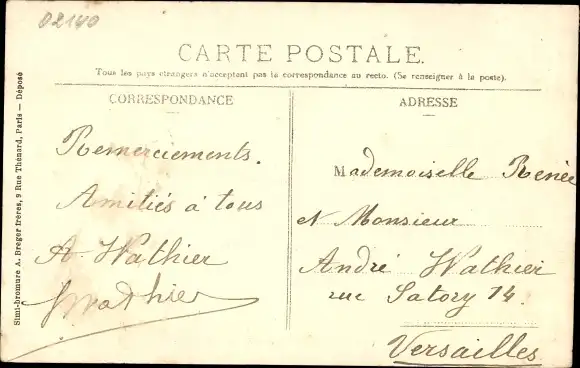 02140
CARTE POSTALE.
Tous les pays étrangers n'acceptent pas la correspondance au recto. (Se renseigner à la poste).
CORRESPONDANCE
Remerciements.
Amitiés à tous
A. Wathier
Wathier
ADRESSE
Mademoiselle Renée
et Monsieur
André Wathier
rue Satory 14.
Versailles
Simi-bromure A. Breger frères, 9 Rue Thénard, Paris — Déposé